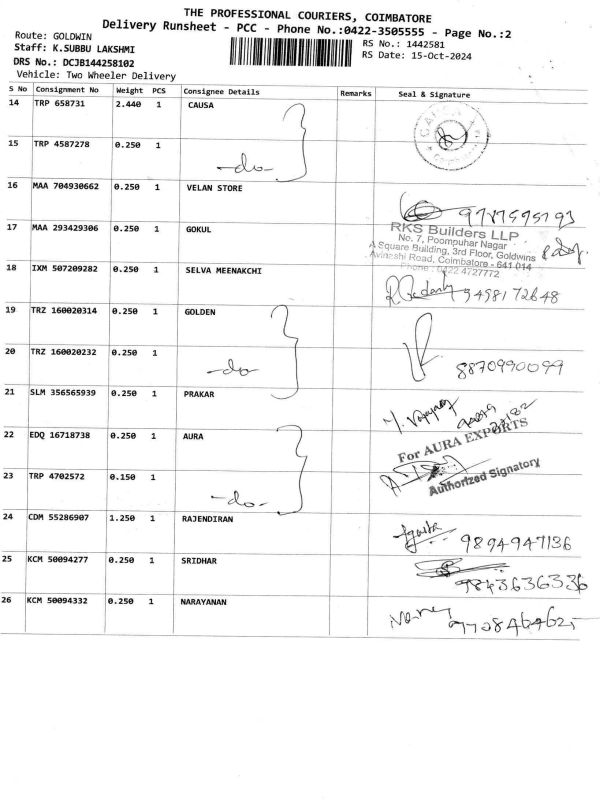 THE PROFESSIONAL COURIERS, COIMBATORE
Delivery Runsheet - PCC - Phone No.:0422-3505555 - Page No.:2
Route: GOLDWIN
Staff: K.SUBBU LAKSHMI
DRS No.: DCJB144258102
Vehicle: Two Wheeler Delivery
RS No.: 1442581
RS Date: 15-Oct-2024
S No Consignment No Weight PCS Consignee Details Remarks Seal & Signature
14 TRP 658731 2.440 1 CAUSA
15 TRP 4587278 0.250 1 -do-
16 MAA 704930662 0.250 1 VELAN STORE
17 MAA 293429306 0.250 1 GOKUL
RKS Builders LLP
No. 7, Poompuhar Nagar
A Square Building, 3rd Floor, Goldwins
Avinashi Road, Coimbatore - 641 014
Phone : 0422 4727772
18 IXM 507209282 0.250 1 SELVA MEENAKCHI 9498172648
19 TRZ 160020314 0.250 1 GOLDEN
20 TRZ 160020232 0.250 1 -do- 8870990099
21 SLM 356565939 0.250 1 PRAKAR
22 EDQ 16718738 0.250 1 AURA
For AURA EXPORTS
Authorized Signatory
23 TRP 4702572 0.150 1 -do-
24 CDM 55286907 1.250 1 RAJENDIRAN 9894947136
25 KCM 50094277 0.250 1 SRIDHAR 9843636336
26 KCM 50094332 0.250 1 NARAYANAN